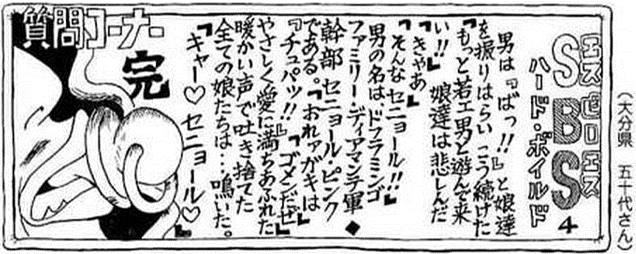 (大分県 五十代さん)
エス ピロ エス
SBS
ハード・ボイルド 4
男は『ばっ!!』と娘達
を振りはらいこう続けた
「もっと若エ男と遊んで来
い!!」 娘達は悲しんだ
「きゃあ」
「そんなセニョール!!」
男の名は、ドフラミンゴ
ファミリー ディアマンテ軍◆
幹部 セニョール・ピンク
である。「おれァガキは
『チュパッ!!』 ゴメンだぜ」
やさしく愛に満ちあふれた
暖かい声で吐き捨てた
全ての娘たちは…鳴いた。
「キャー♡セニョール♡」
完
質問コーナー